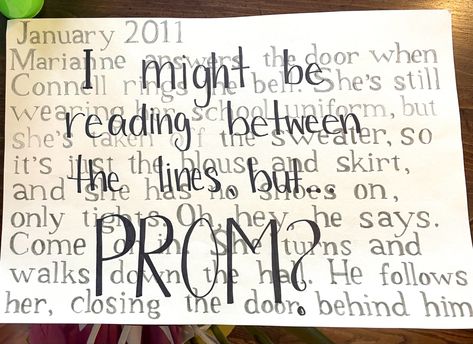 January 2011
Marianne answers the door when
Connell rings the bell. She's still
wearing her school uniform, but
she's taken off the sweater, so
it's just the blouse and skirt,
and she has no shoes on,
only tights. Oh, hey, he says.
Come on in. She turns and
walks down the hall. He follows
her, closing the door behind him
I might be
reading between
the lines, but...
PROM?